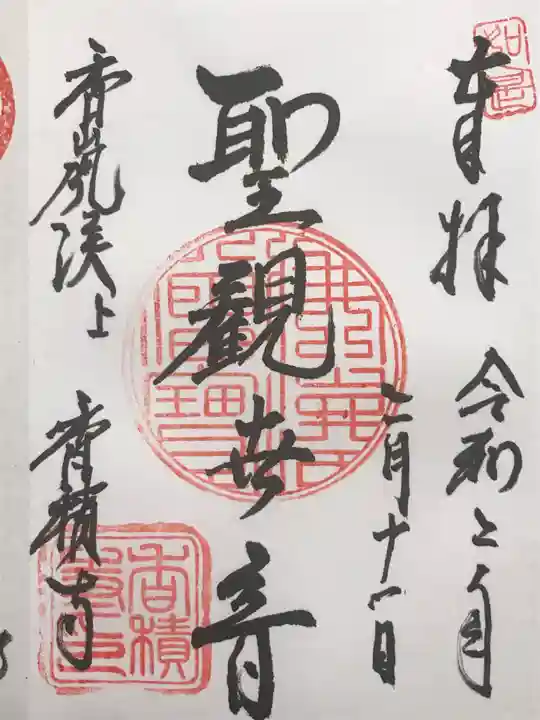 奉拜 令和二年
二月十一日
聖觀世音
香嵐渓上 香積寺
香積寺印